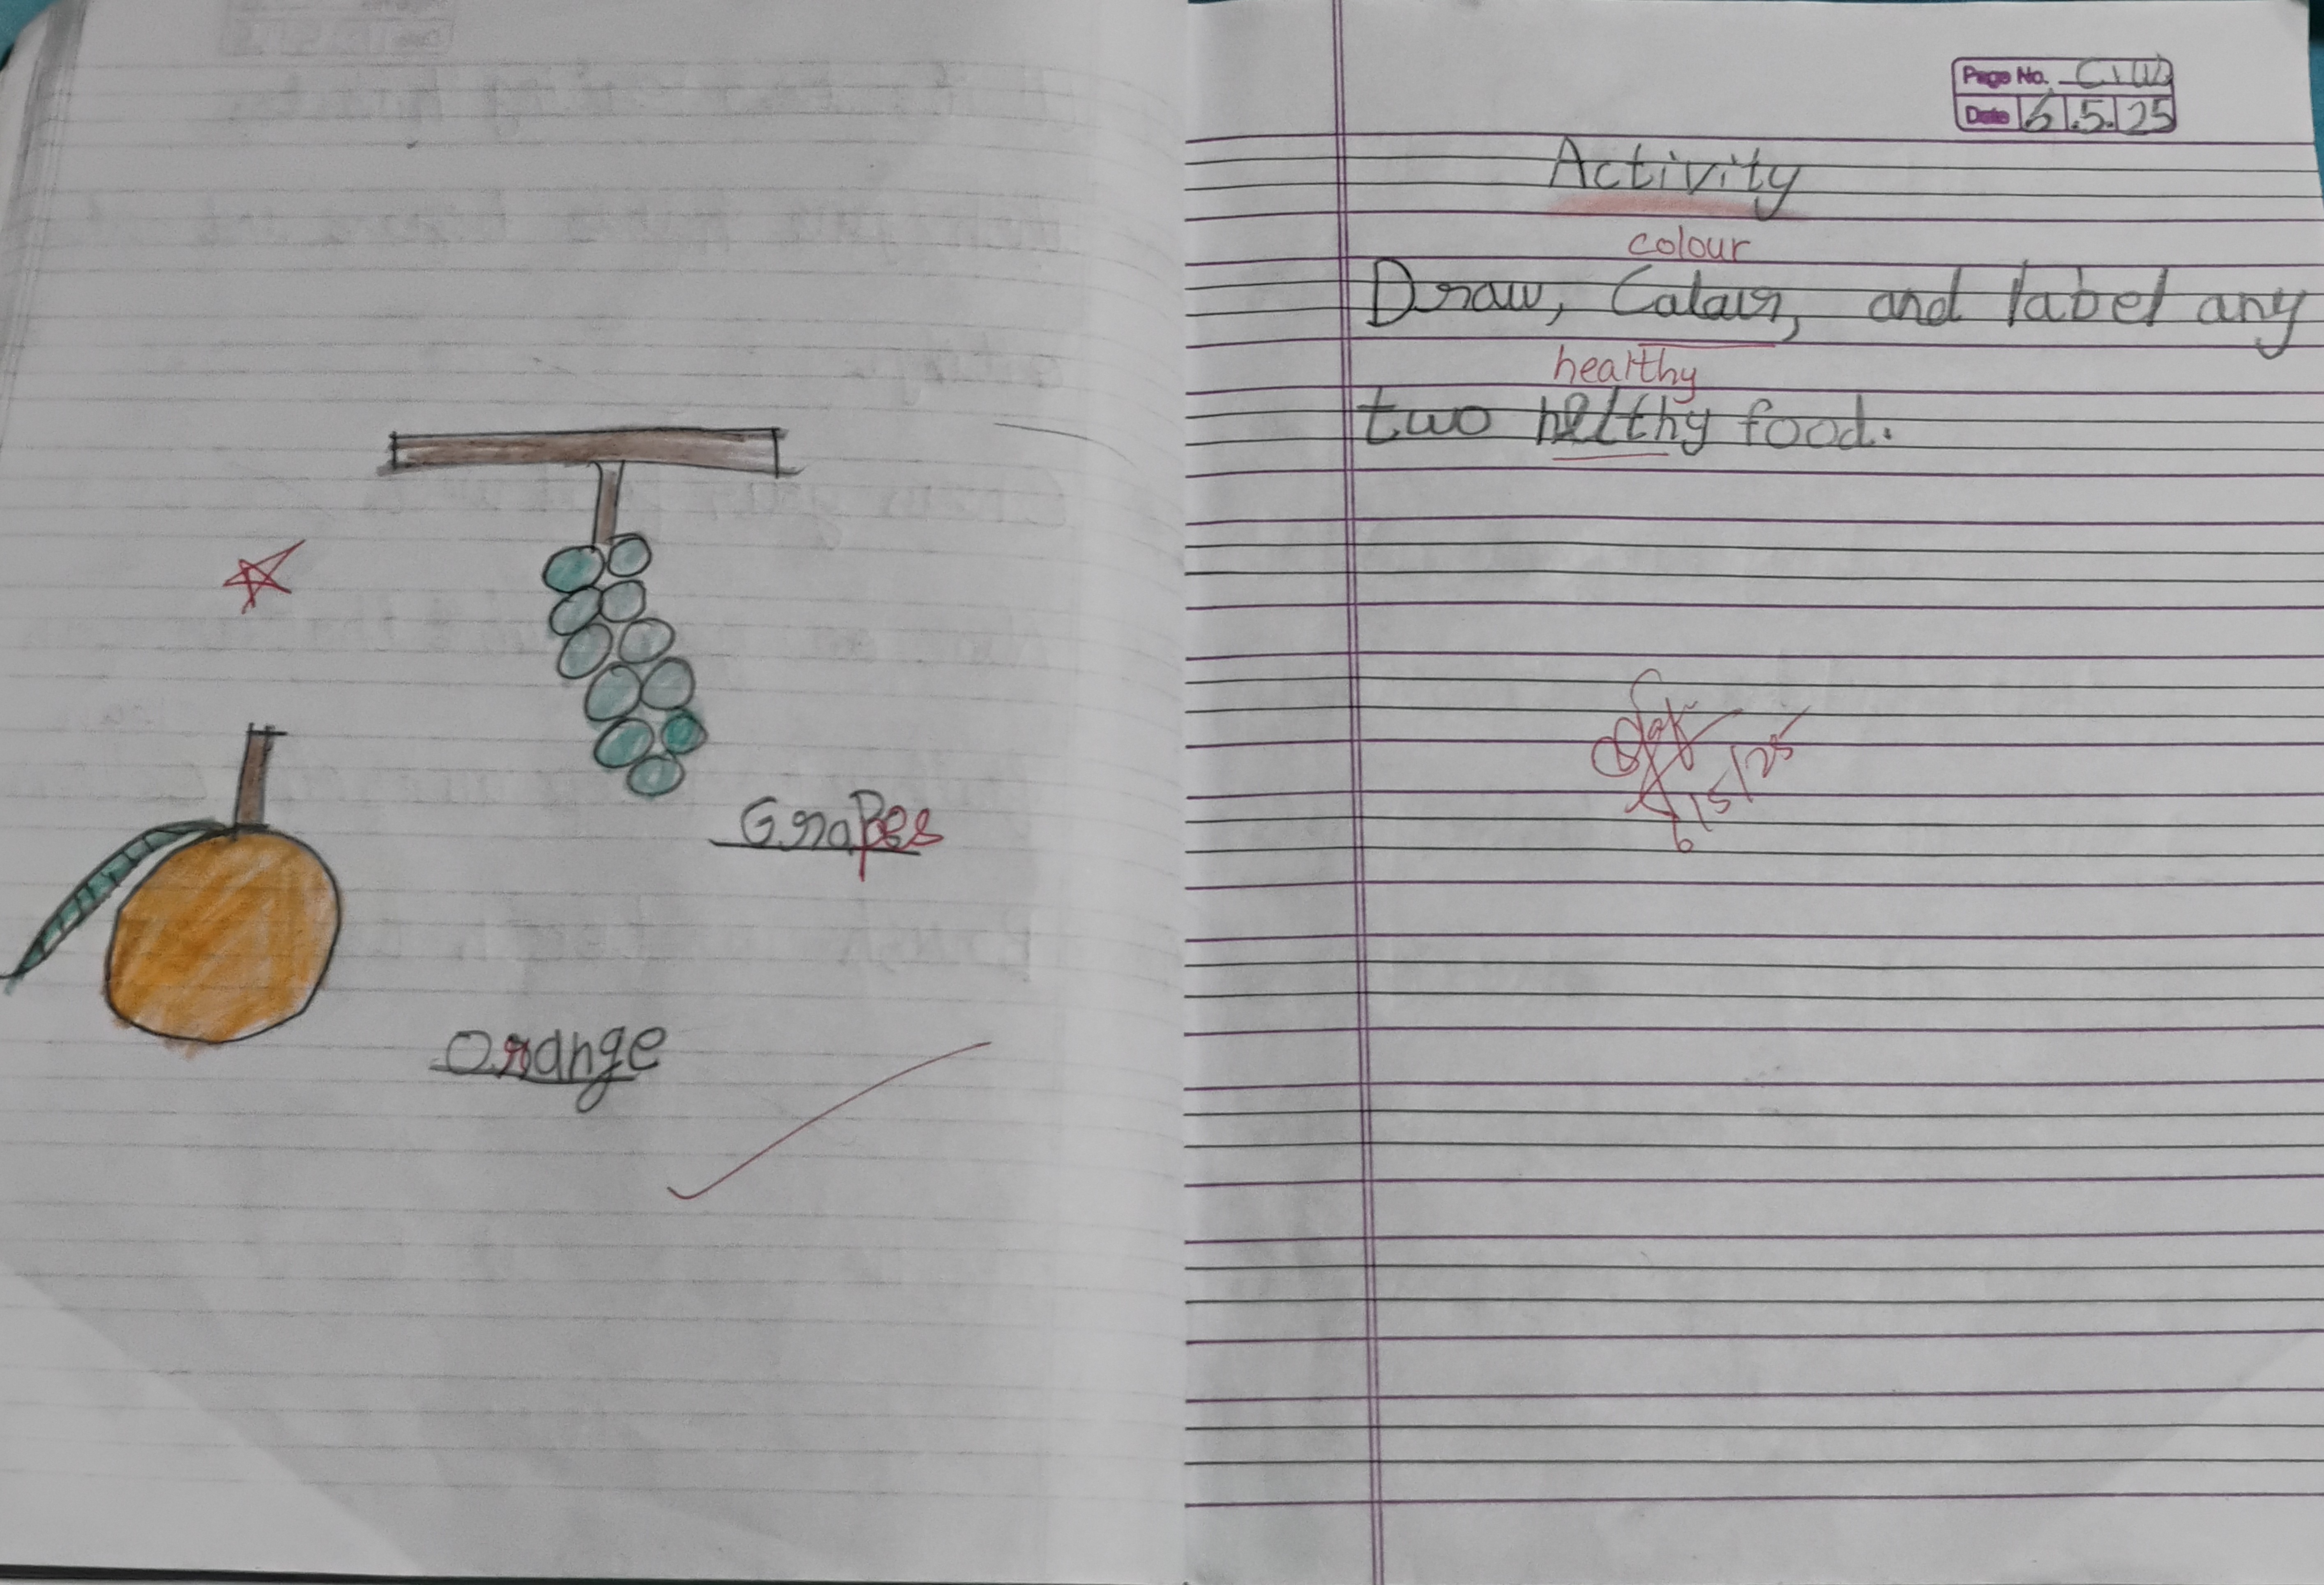 Grapes
Orange
Page No. C.W
Date 6.5.25
Activity
colour
Draw, Calaur, and label any
healthy
two helthy food.
6/5/25